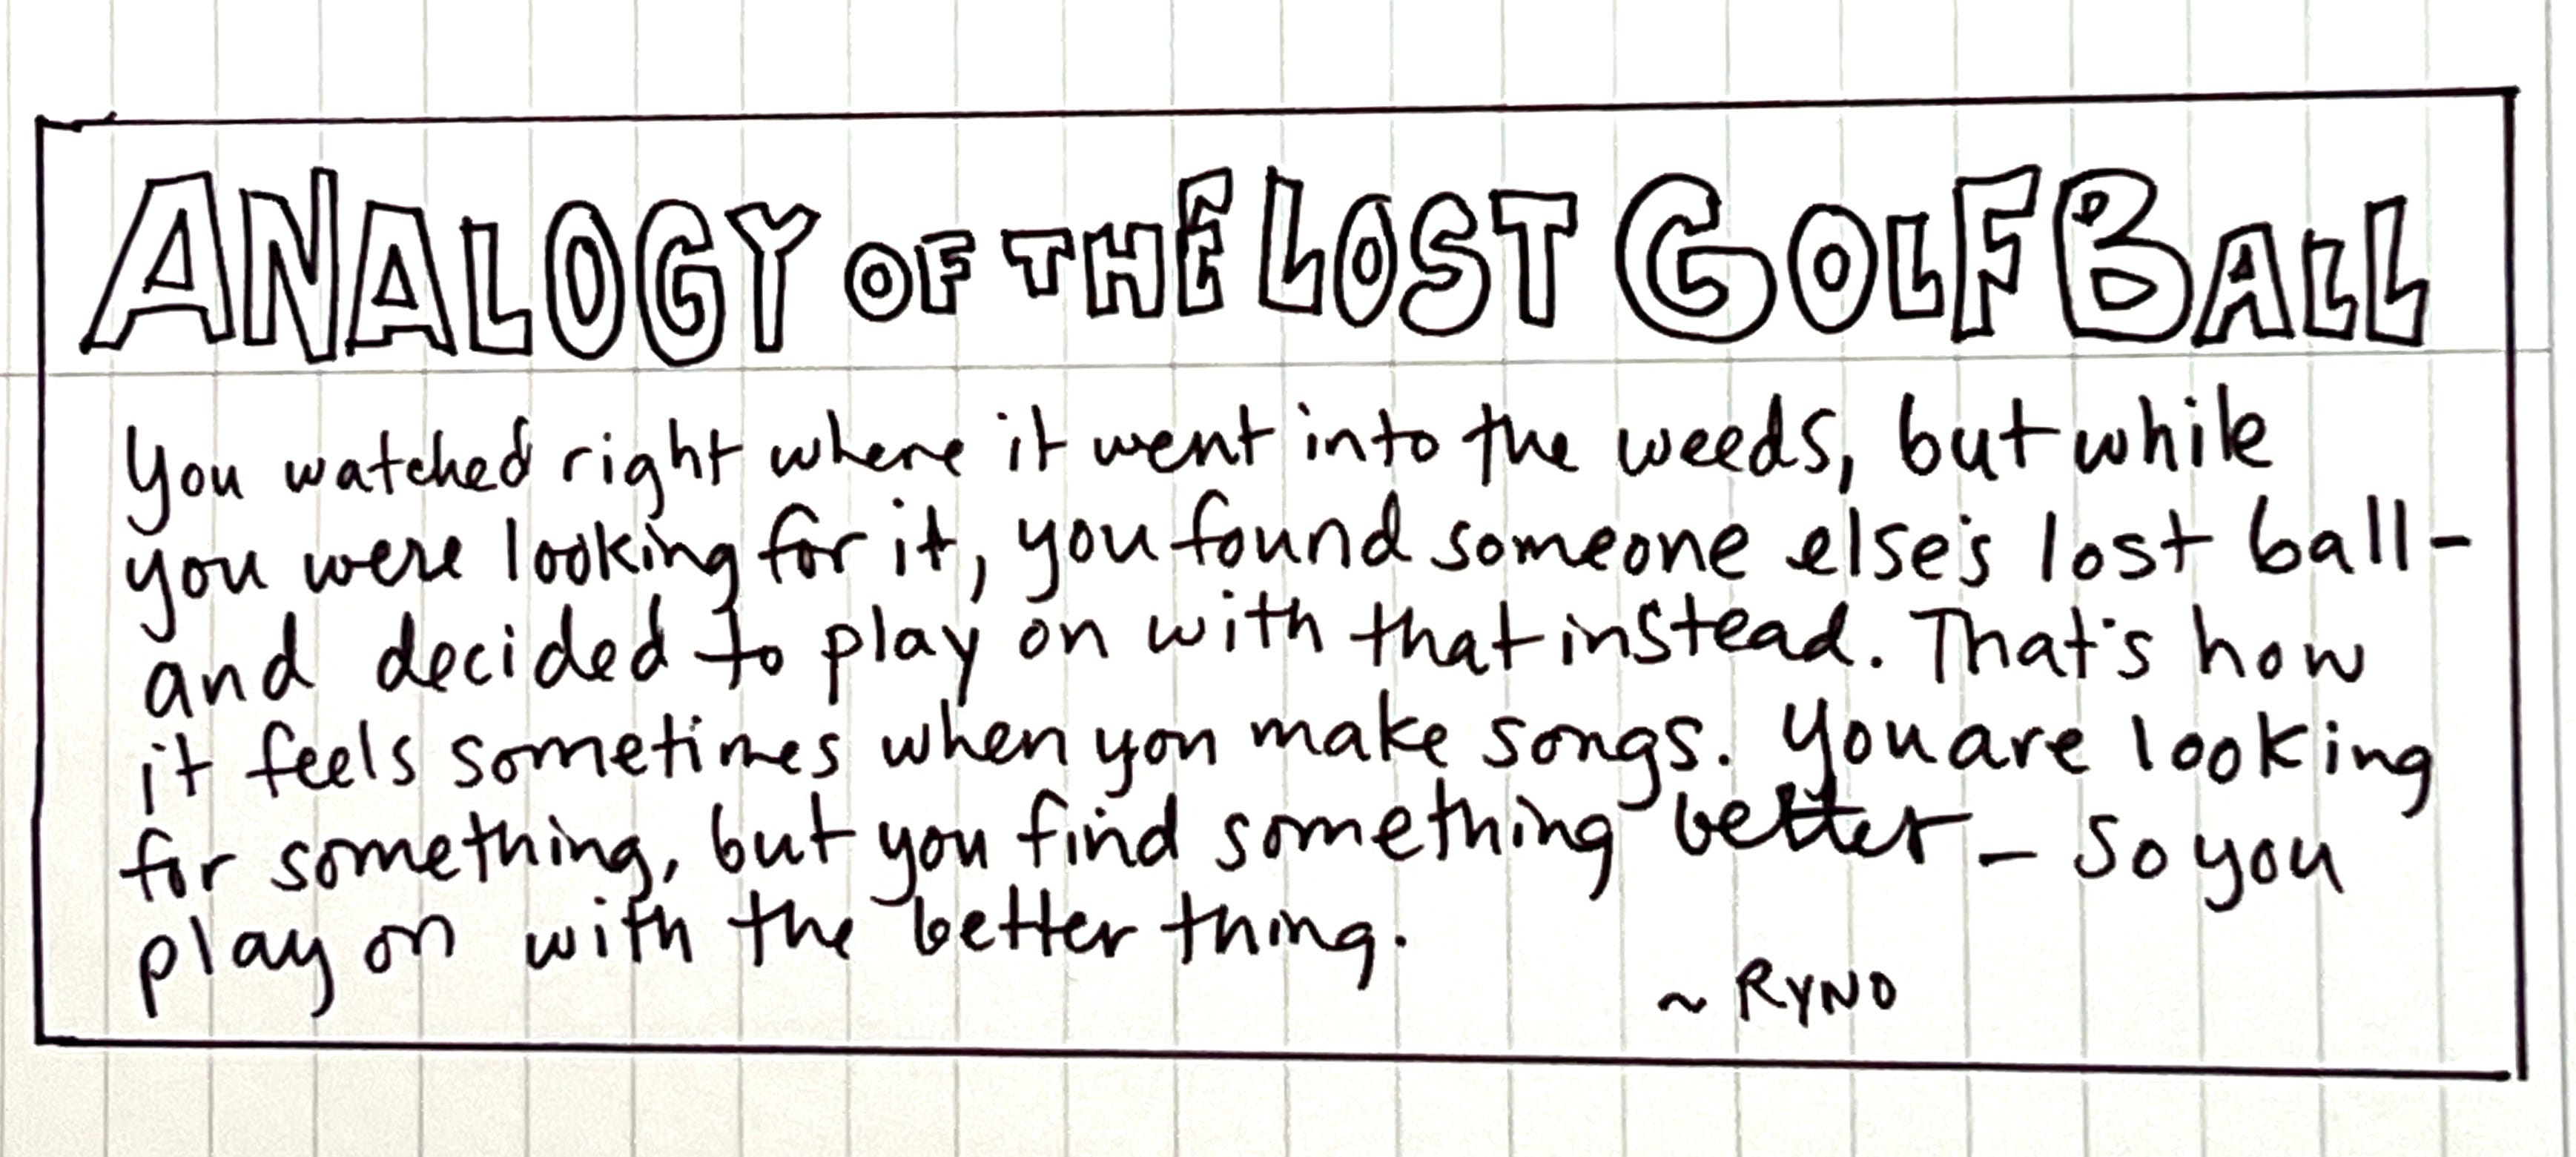 ANALOGY OF THE LOST GOLF BALL
You watched right where it went into the weeds, but while
you were looking for it, you found someone else's lost ball -
and decided to play on with that instead. That's how
it feels sometimes when you make songs. You are looking
for something, but you find something better - so you
play on with the better thing.
~ RYNO